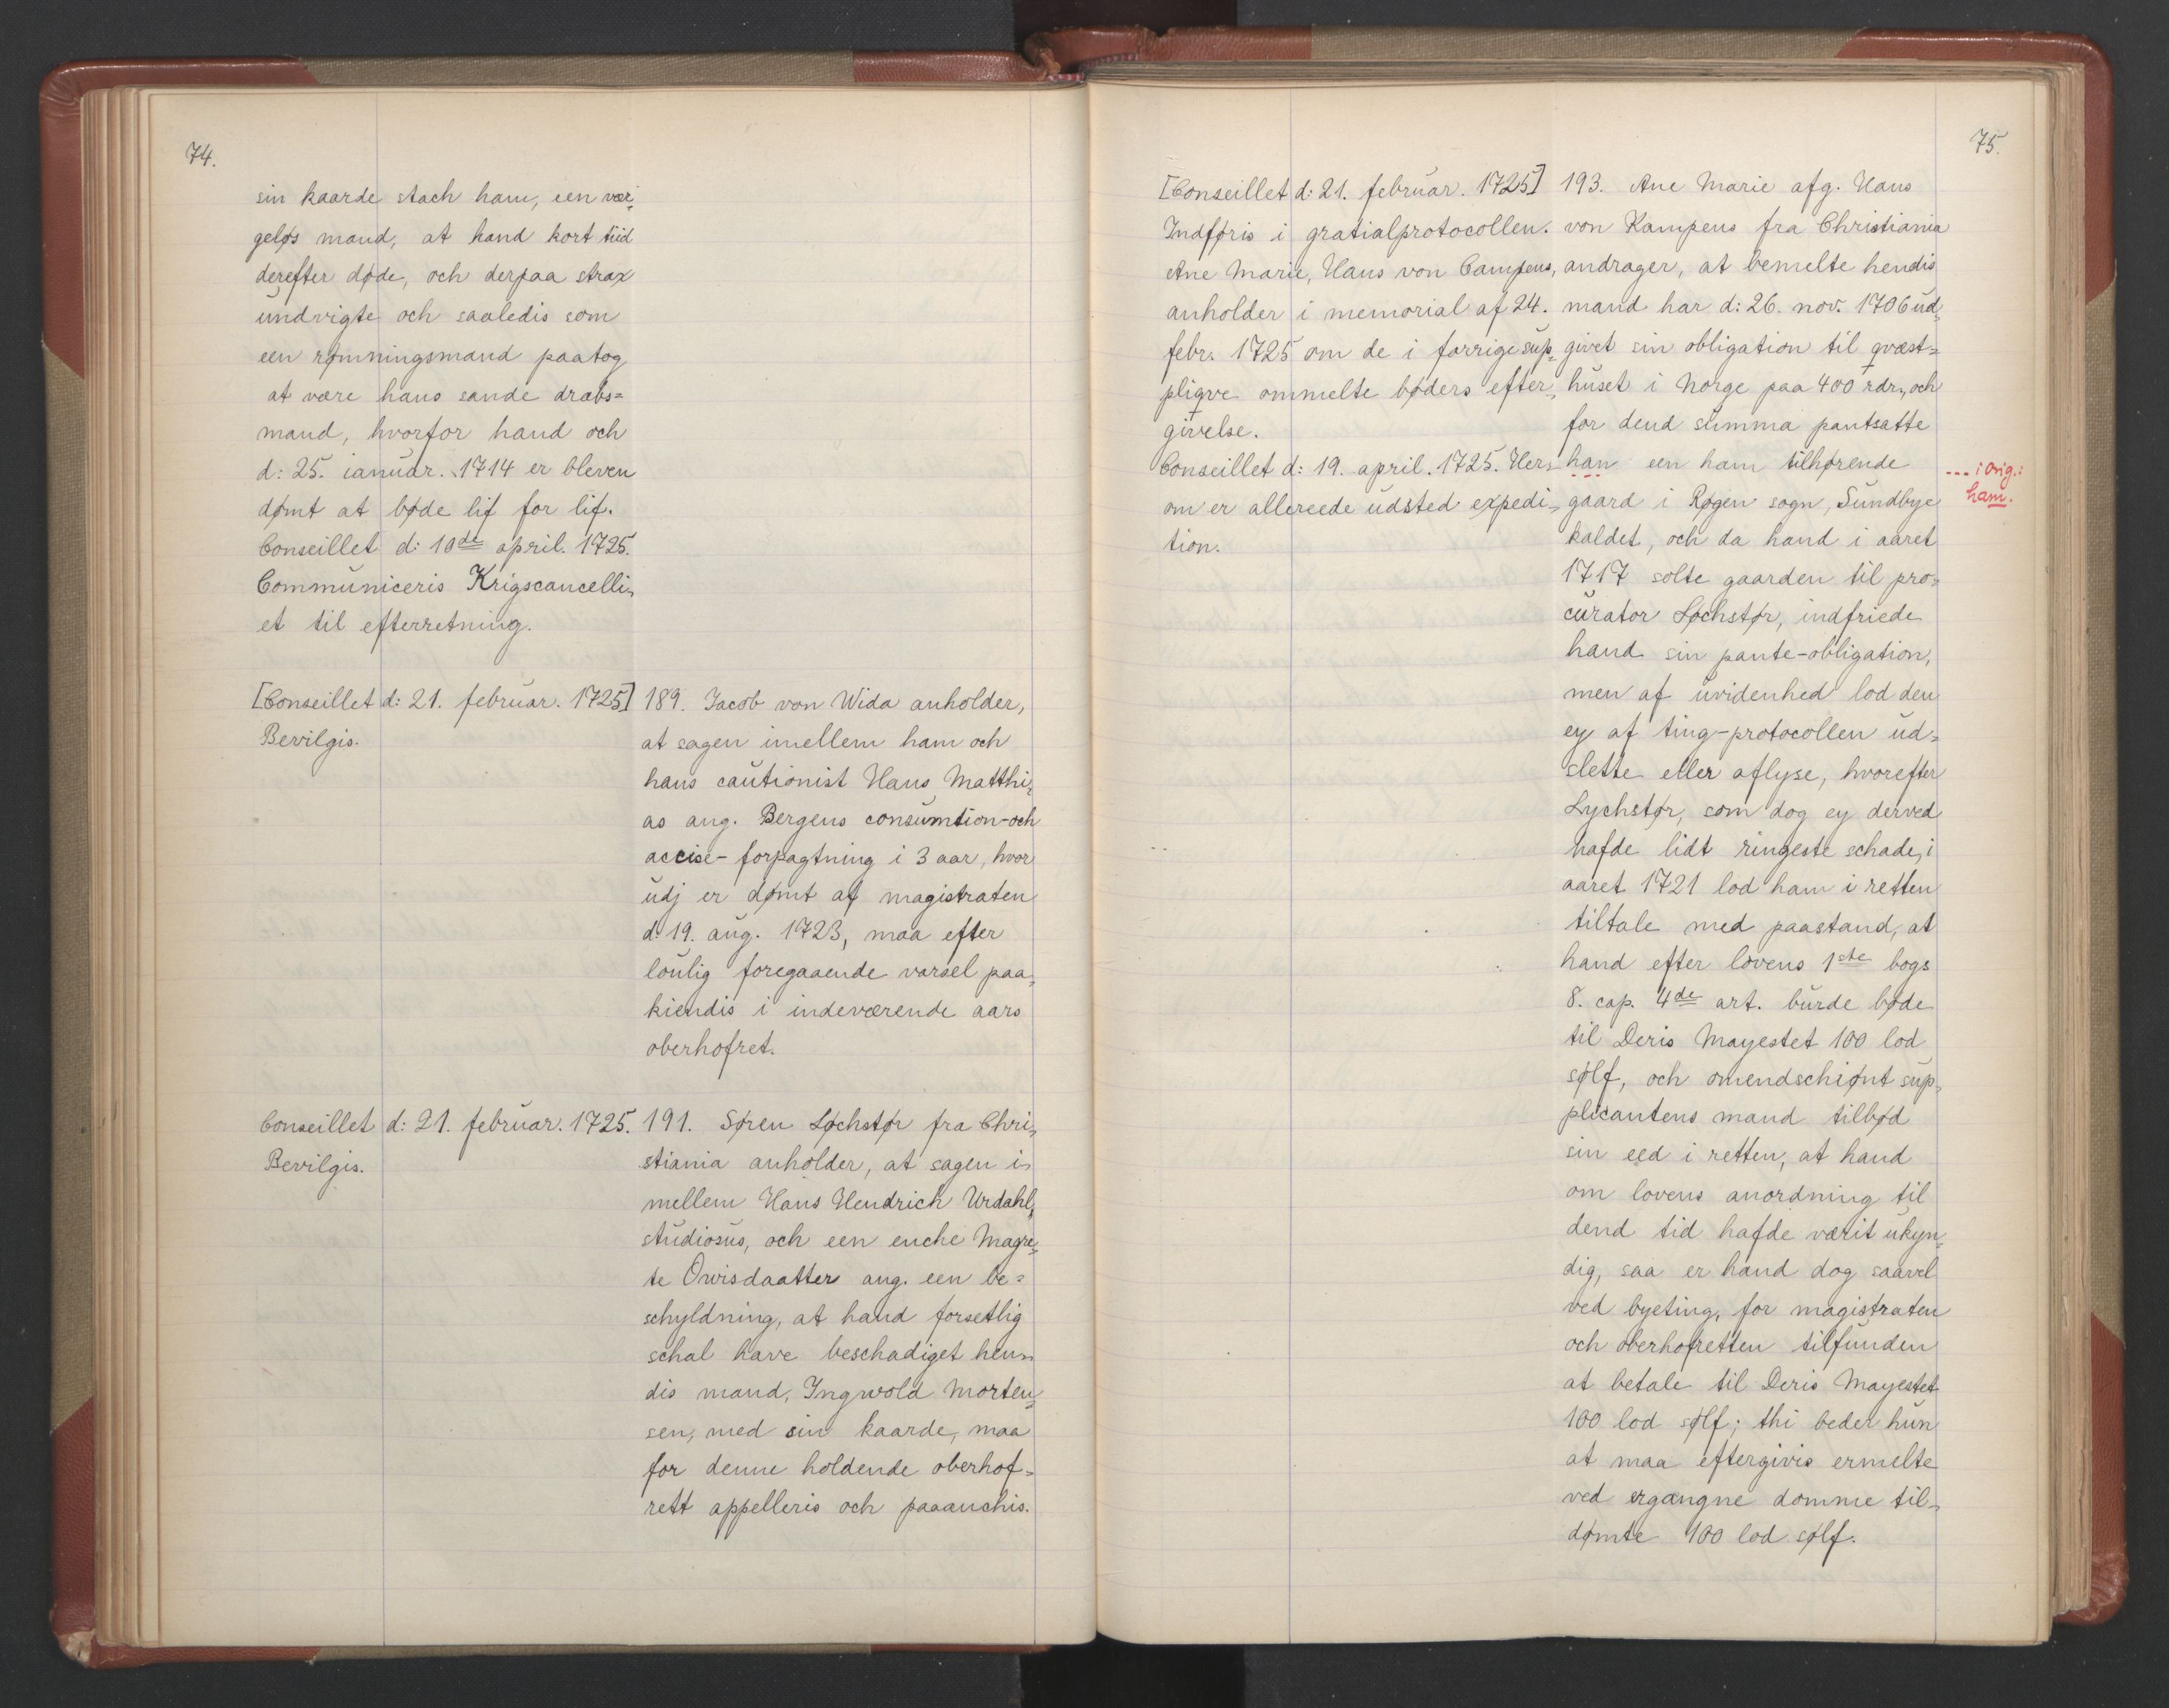 74.
sin kaarde stach ham, een vær-
geløs mand, at hand kort tiid
derefter døde, och derpaa strax
undvigte och saaledis som
een rømningsmand paatog
at være hans sande drabs=
mand, hvorfor hand och
d: 25. ianuar. 1714 er bleven
dømt at bøde lif for lif.
Conseillet d: 10de april. 1725.
Communiceris Krigscancelli-
et til efterretning.
[Conseillet d: 21. februar. 1725]
Bevilgis.
189. Jacob von Wida anholder,
at sagen imellem ham och
hans cautionist Hans Matthi-
as ang. Bergens consumtion- och
accise- forpagtning i 3 aar, hvor
udj er dømt af magistraten
d: 19. aug. 1723, maa efter
loulig foregaaende varsel paa-
kiendis i indeværende aars
oberhofret.
Conseillet d: 21. februar. 1725.
Bevilgis.
191. Søren Løchstør fra Chri-
stiania anholder, at sagen i-
mellem Hans Hendrich Urdahl,
studiosus, och een enche Magre-
te Owisdaatter ang. een be=
schyldning, at hand forsetlig
schal have beschadiget hen-
dis mand, Ingwold Morten-
sen, med sin kaarde, maa
for denne holdende oberhof=
rett appelleris och paaanchis.
75.
[Conseillet d: 21. februar. 1725]
Indføris i gratialprotocollen.
Ane Marie, Hans von Campens,
anholder i memorial af 24.
febr. 1725 om de i forrige sup-
pliqve ommelte bøders efter-
givelse.
Conseillet d: 19. april. 1725. Her-
om er allereede udsted expedi-
tion.
193. Ane Marie afg. Hans
von Kampens fra Christiania
andrager, at bemelte hendis
mand har d: 26. nov. 1706 ud-
givet sin obligation til qvæst=
huset i Norge paa 400 rdr., och
for dend summa pantsatte
han een ham tilhørende
gaard i Røgen sogn, Sundbye
kaldet, och da hand i aaret
1717 solte gaarden til pro-
curator Løchstør, indfriede
hand sin pante-obligation,
men af uvidenhed lod den
ey af ting-protocollen ud=
slette eller aflyse, hvorefter
Lychstør, som dog ey derved
hafde lidt ringeste schade, i
aaret 1721 lod ham i retten
tiltale med paastand, at
hand efter lovens 1ste bogs
8. cap. 4de art. burde bøde
til Deris Mayestet 100 lod
sølf, och omendschiønt sup-
plicantens mand tilbød
sin eed i retten, at hand
om lovens anordning til
dend tid hafde værit ukyn-
dig, saa er hand dog saavel
ved byeting, for magistraten
och oberhofretten tilfunden
at betale til Deris Mayestet
100 lod sølf; thi beder hun
at maa eftergivis ermelte
ved ergangne domme til-
dømte 100 lod sølf.
--- i orig.:
ham.